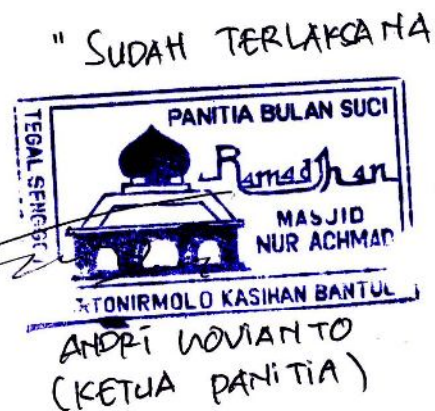 " SUDAH TERLAKSANA
PANITIA BULAN SUCI
Ramadhan
MASJID
NUR ACHMAD
TONIRMOLO KASIHAN BANTUL
ANDRI NOVIANTO
(KETUA PANITIA)